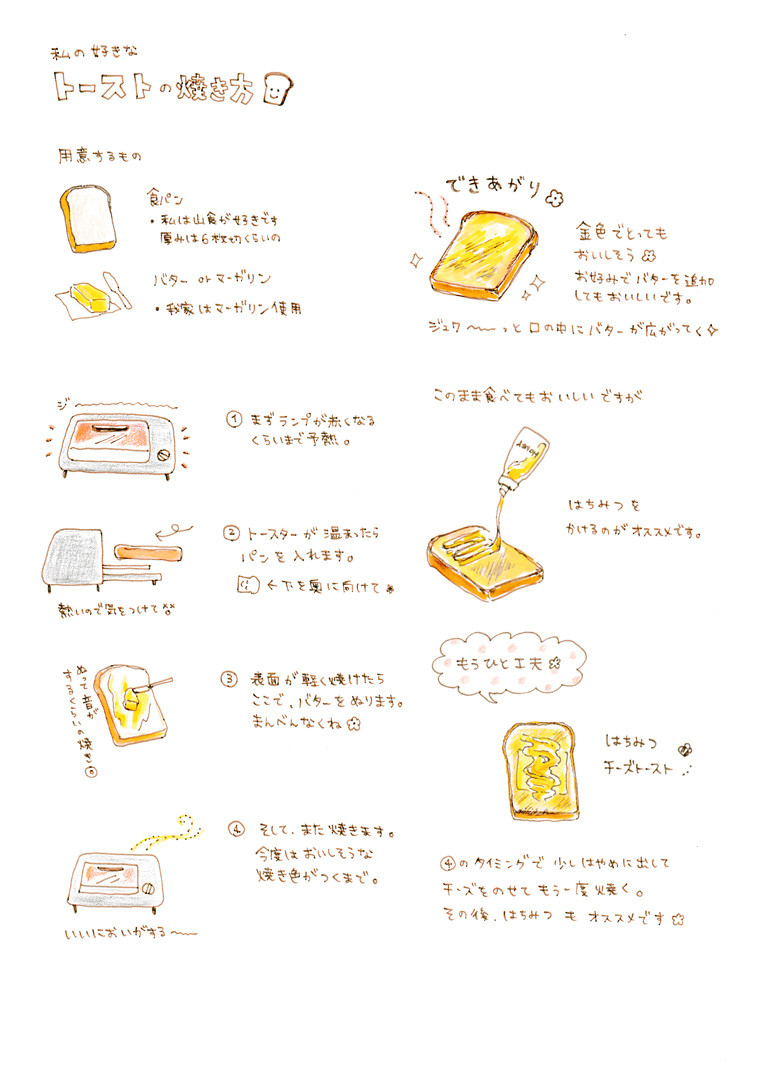 私の好きな
トーストの焼き方
用意するもの
食パン
・私は山食が好きです
厚みは6枚切くらいの
バター or マーガリン
・我家はマーガリン使用
ジ
① まずランプが赤くなる
くらいまで予熱。
② トースターが温まったら
パンを入れます。
←下を奥に向けて
熱いので気をつけて
③ 表面が軽く焼けたら
ここで、バターをぬります。
まんべんなくね
ぬって音が
するくらいの焼き
④ そして、また焼きます。
今度はおいしそうな
焼き色がつくまで。
いいにおいがする〜
できあがり
金色でとっても
おいしそう
お好みでバターを追加
してもおいしいです。
ジュワ〜〜っと口の中にバターが広がってく
このまま食べてもおいしいですが
はちみつを
かけるのがオススメです。
もうひと工夫
はちみつ
チーズトースト
④のタイミングで少しはやめに出して
チーズをのせてもう一度焼く。
その後、はちみつもオススメです